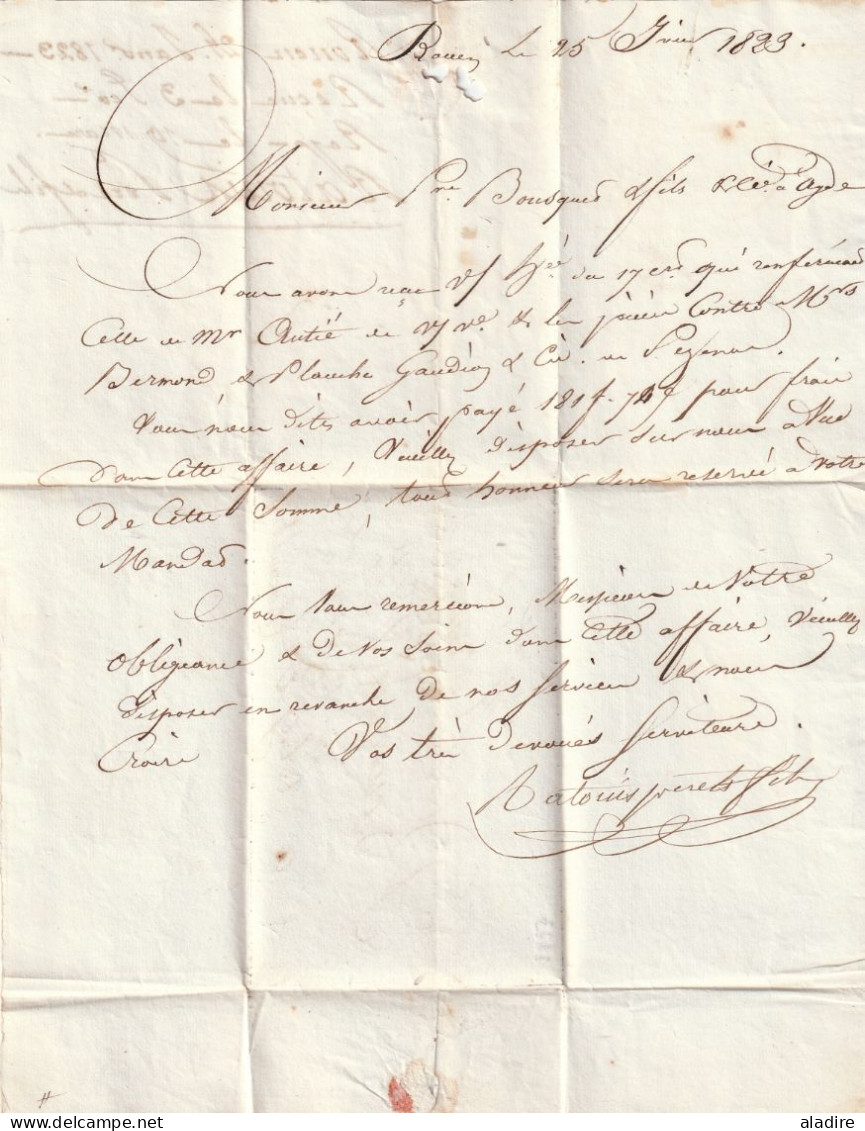 Rouen Le 25 Jvier 1823.
Monsieur Pre Bousquet & fils & Cie a Agde
Nous avons reçu V/ hrée du 17 crt qui renfermait
Celle de Mr Autié de V/ ve & les pièces Contre Mrs
Bermond & Planche Gaudion & Cie de Pezenas.
Vous nous dites avoir payé 181 f. pour frais
dans Cette affaire, Veuillez disposer sur nous a Vue
De Cette Somme, tout honneur sera reservé a Votre
Mandat.
Nous Vous remercions, Messieurs de Votre
Obligeance & De Vos Soins dans Cette affaire, Veuillez
disposer en revanche De nos Services & nous
Croire Vos très Dévoués Serviteurs.
Ratouis père & fils
aladire / www.delcampe.net